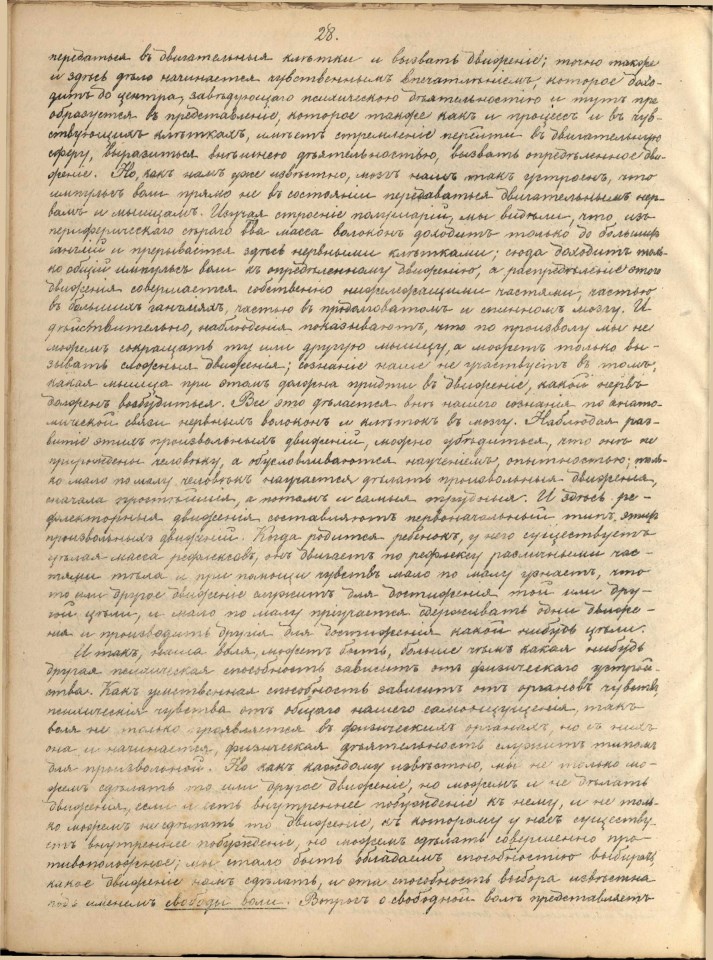 28.
передаться въ двигательныя клѣтки и вызвать движеніе; точно также
и здѣсь дѣло начинается чувственнымъ впечатлѣніемъ, которое дохо-
дитъ до центра, завѣдующаго психическою дѣятельностію и тутъ пре
образуется въ представленіе, которое также какъ и процессъ и въ чув-
ствующихъ клѣткахъ, имѣетъ стремленіе перейти въ двигательную
сферу, выразиться внѣшнею дѣятельностью, вызвать опредѣленное дви
женіе. Но, какъ намъ уже извѣстно, мозгъ нашъ такъ устроенъ, что
импульсъ воли прямо не въ состояніи передаваться двигательнымъ нер
вамъ и мышцамъ. Изучая строеніе полушарій, мы видѣли, что изъ
периферическаго сѣраго вва масса волоконъ доходитъ только до большихъ
ганглій и прерывается здѣсь нервными клѣтками; сюда доходитъ толь-
ко общій импульсъ воли къ опредѣленному движенію, а распредѣленіе этого
движенія совершается собственно нижележащими частями, частью
въ большихъ гангліяхъ, частью въ продолговатомъ и спинномъ мозгу. И
дѣйствительно, наблюденія показываютъ, что по произволу мы не
можемъ сокращать ту или другую мышцу, а можетъ только вы-
зывать сложныя движенія; сознаніе наше не участвуетъ въ томъ,
какая мышца при этомъ должна придти въ движеніе, какой нервъ
долженъ возбудиться. Все это дѣлается внѣ нашего сознанія по анато-
мической связи нервныхъ волоконъ и клѣтокъ въ мозгу. Наблюдая раз-
витіе этихъ произвольныхъ движеній, можно убѣдиться, что онѣ не
прирождены человѣку, а обусловливаются наученіемъ, опытностью; толь-
ко мало по малу человѣкъ научается дѣлать произвольныя движенія,
сначала простѣйшія, а потомъ и самыя трудныя. И здѣсь ре-
флекторныя движенія составляютъ первоначальный типъ этихъ
произвольныхъ движеній. Когда родится ребенокъ, у него существуетъ
цѣлая масса рефлексовъ, онъ двигаетъ по рефлексу различными час-
тями тѣла и при помощи чувствъ мало по малу узнаетъ, что
то или другое движеніе служитъ для достиженія той или дру-
гой цѣли, и мало по малу пріучается сдерживать одни движе-
нія и производить другія для достиженія какой нибудь цѣли.
Итакъ, наша воля, можетъ быть, больше чѣмъ какая нибудь
другая психическая способность зависитъ отъ физическаго устрой-
ства. Какъ умственная способность зависитъ отъ органовъ чувствъ,
психическія чувства отъ общаго нашего самоощущенія, такъ
воля не только проявляется въ физическихъ органахъ, но съ нихъ
она и начинается, физическая дѣятельность служитъ типомъ
для произвольной. Но какъ каждому извѣстно, мы не только мо-
жемъ сдѣлать то или другое движеніе, но можемъ и не дѣлать
движенія, если и есть внутреннее побужденіе къ нему, и не толь-
ко можемъ не сдѣлать то движеніе, къ которому у насъ существу-
етъ внутреннее побужденіе, но можемъ сдѣлать совершенно про-
тивоположное; мы стало быть обладаемъ способностію выбирать,
какое движеніе намъ сдѣлать, и эта способность выбора извѣстна
подъ именемъ свободы воли. Вопросъ о свободной волѣ представляетъ